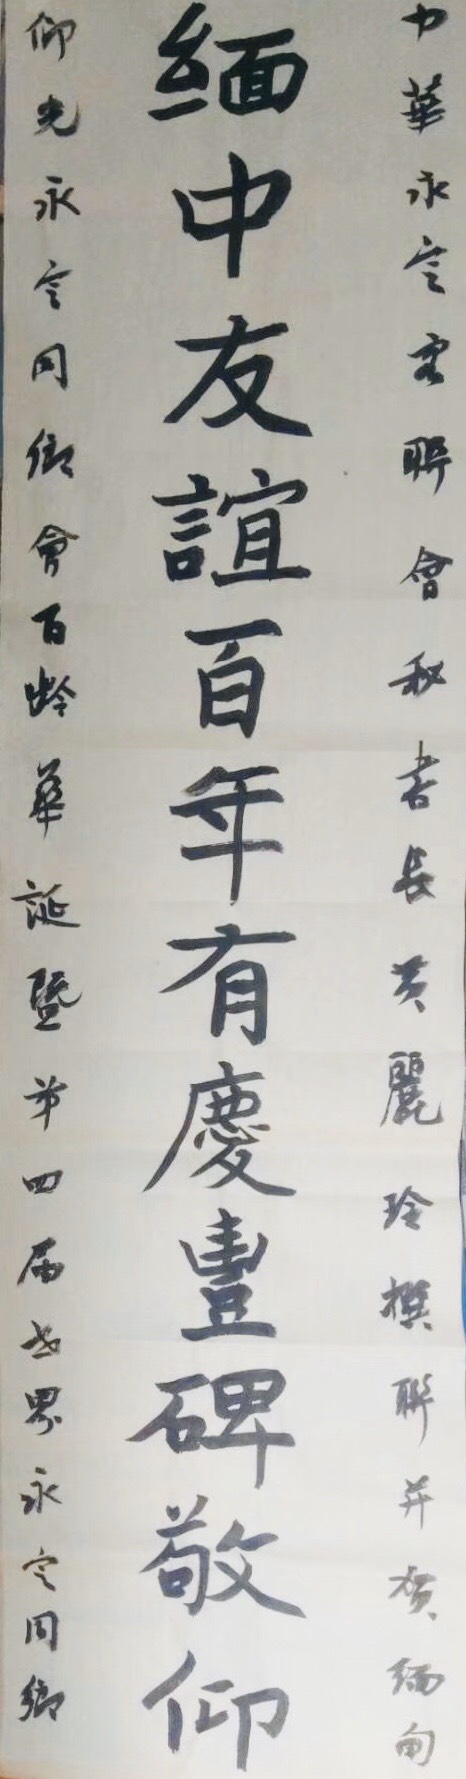 中華永定客聯會秘書長黃麗玲撰聯并賀緬甸
緬中友誼百年有慶豐碑敬仰
仰光永定同鄉會百齡華誕暨第四届世界永定同鄉